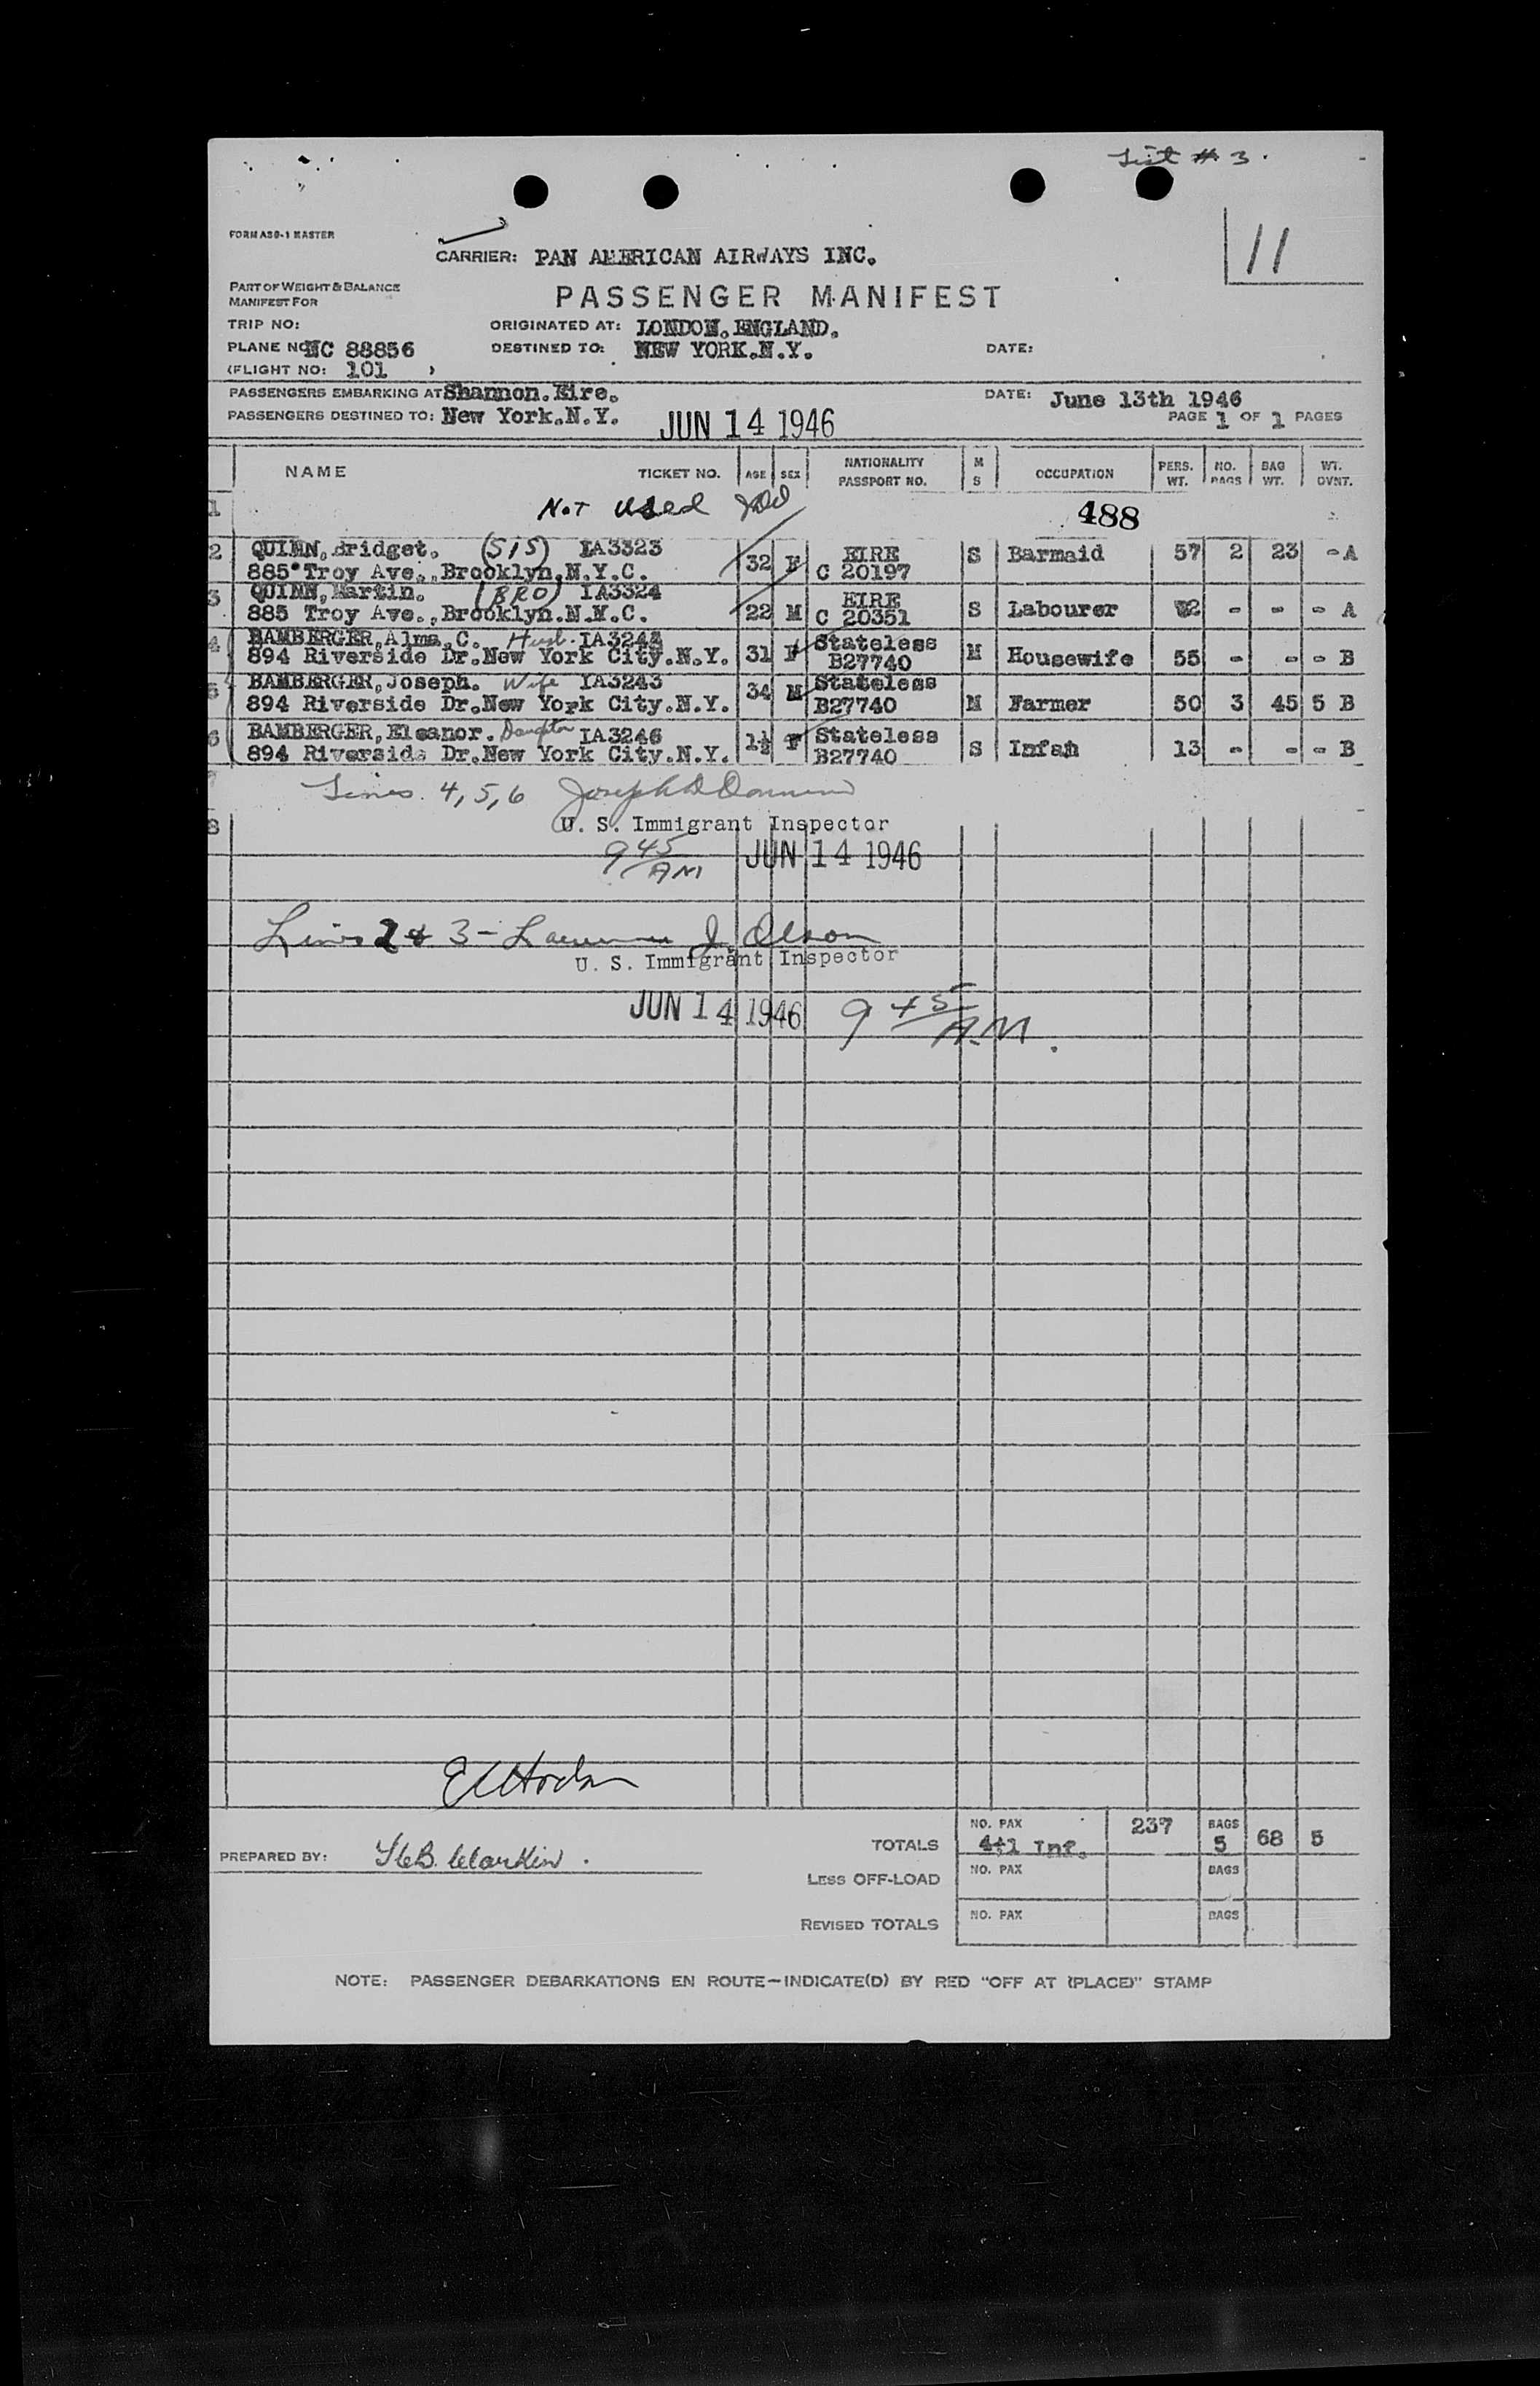 List # 3.
11
FORM A39-1 MASTER
CARRIER: PAN AMERICAN AIRWAYS INC.
PART OF WEIGHT & BALANCE
MANIFEST FOR
PASSENGER MANIFEST
TRIP NO: ORIGINATED AT: LONDON. ENGLAND.
PLANE NO: NC 88856 DESTINED TO: NEW YORK. N.Y. DATE:
(FLIGHT NO: 101 )
PASSENGERS EMBARKING AT Shannon. Eire. DATE: June 13th 1946
PASSENGERS DESTINED TO: New York. N.Y. JUN 14 1946 PAGE 1 OF 1 PAGES
NAME TICKET NO. AGE SEX NATIONALITY PASSPORT NO. M S OCCUPATION PERS. WT. NO. BAGS BAG WT. WT. OVNT.
1 Not used 488
2 QUINN, Bridget. (SIS) IA3323 32 F EIRE S Barmaid 57 2 23 - A
885 Troy Ave., Brooklyn. N.Y.C. C 20197
3 QUINN, Martin. (BRO) IA3324 22 M EIRE S Labourer - - - A
885 Troy Ave., Brooklyn. N.Y.C. C 20351
4 BAMBERGER, Alma, C. Husb. 31 F Stateless M Housewife 55 - - - B
894 Riverside Dr. New York City. N.Y. B27740
5 BAMBERGER, Joseph. Wife IA3243 34 M Stateless M Farmer 50 3 45 5 B
894 Riverside Dr. New York City. N.Y. B27740
6 BAMBERGER, Eleanor. Daughter IA3246 1½ F Stateless S Infan 13 - - - B
894 Riverside Dr. New York City. N.Y. B27740
Lines 4, 5, 6 Joseph D
8 U. S. Immigrant Inspector
9 45 AM JUN 14 1946
Lines 2 & 3 - J. Olson
U. S. Immigrant Inspector
JUN 14 1946 9 45 A.M.
TOTALS NO. PAX 4+1 Inf. 237 BAGS 5 68 5
PREPARED BY:
LESS OFF-LOAD NO. PAX BAGS
REVISED TOTALS NO. PAX BAGS
NOTE: PASSENGER DEBARKATIONS EN ROUTE—INDICATE(D) BY RED "OFF AT (PLACE)" STAMP